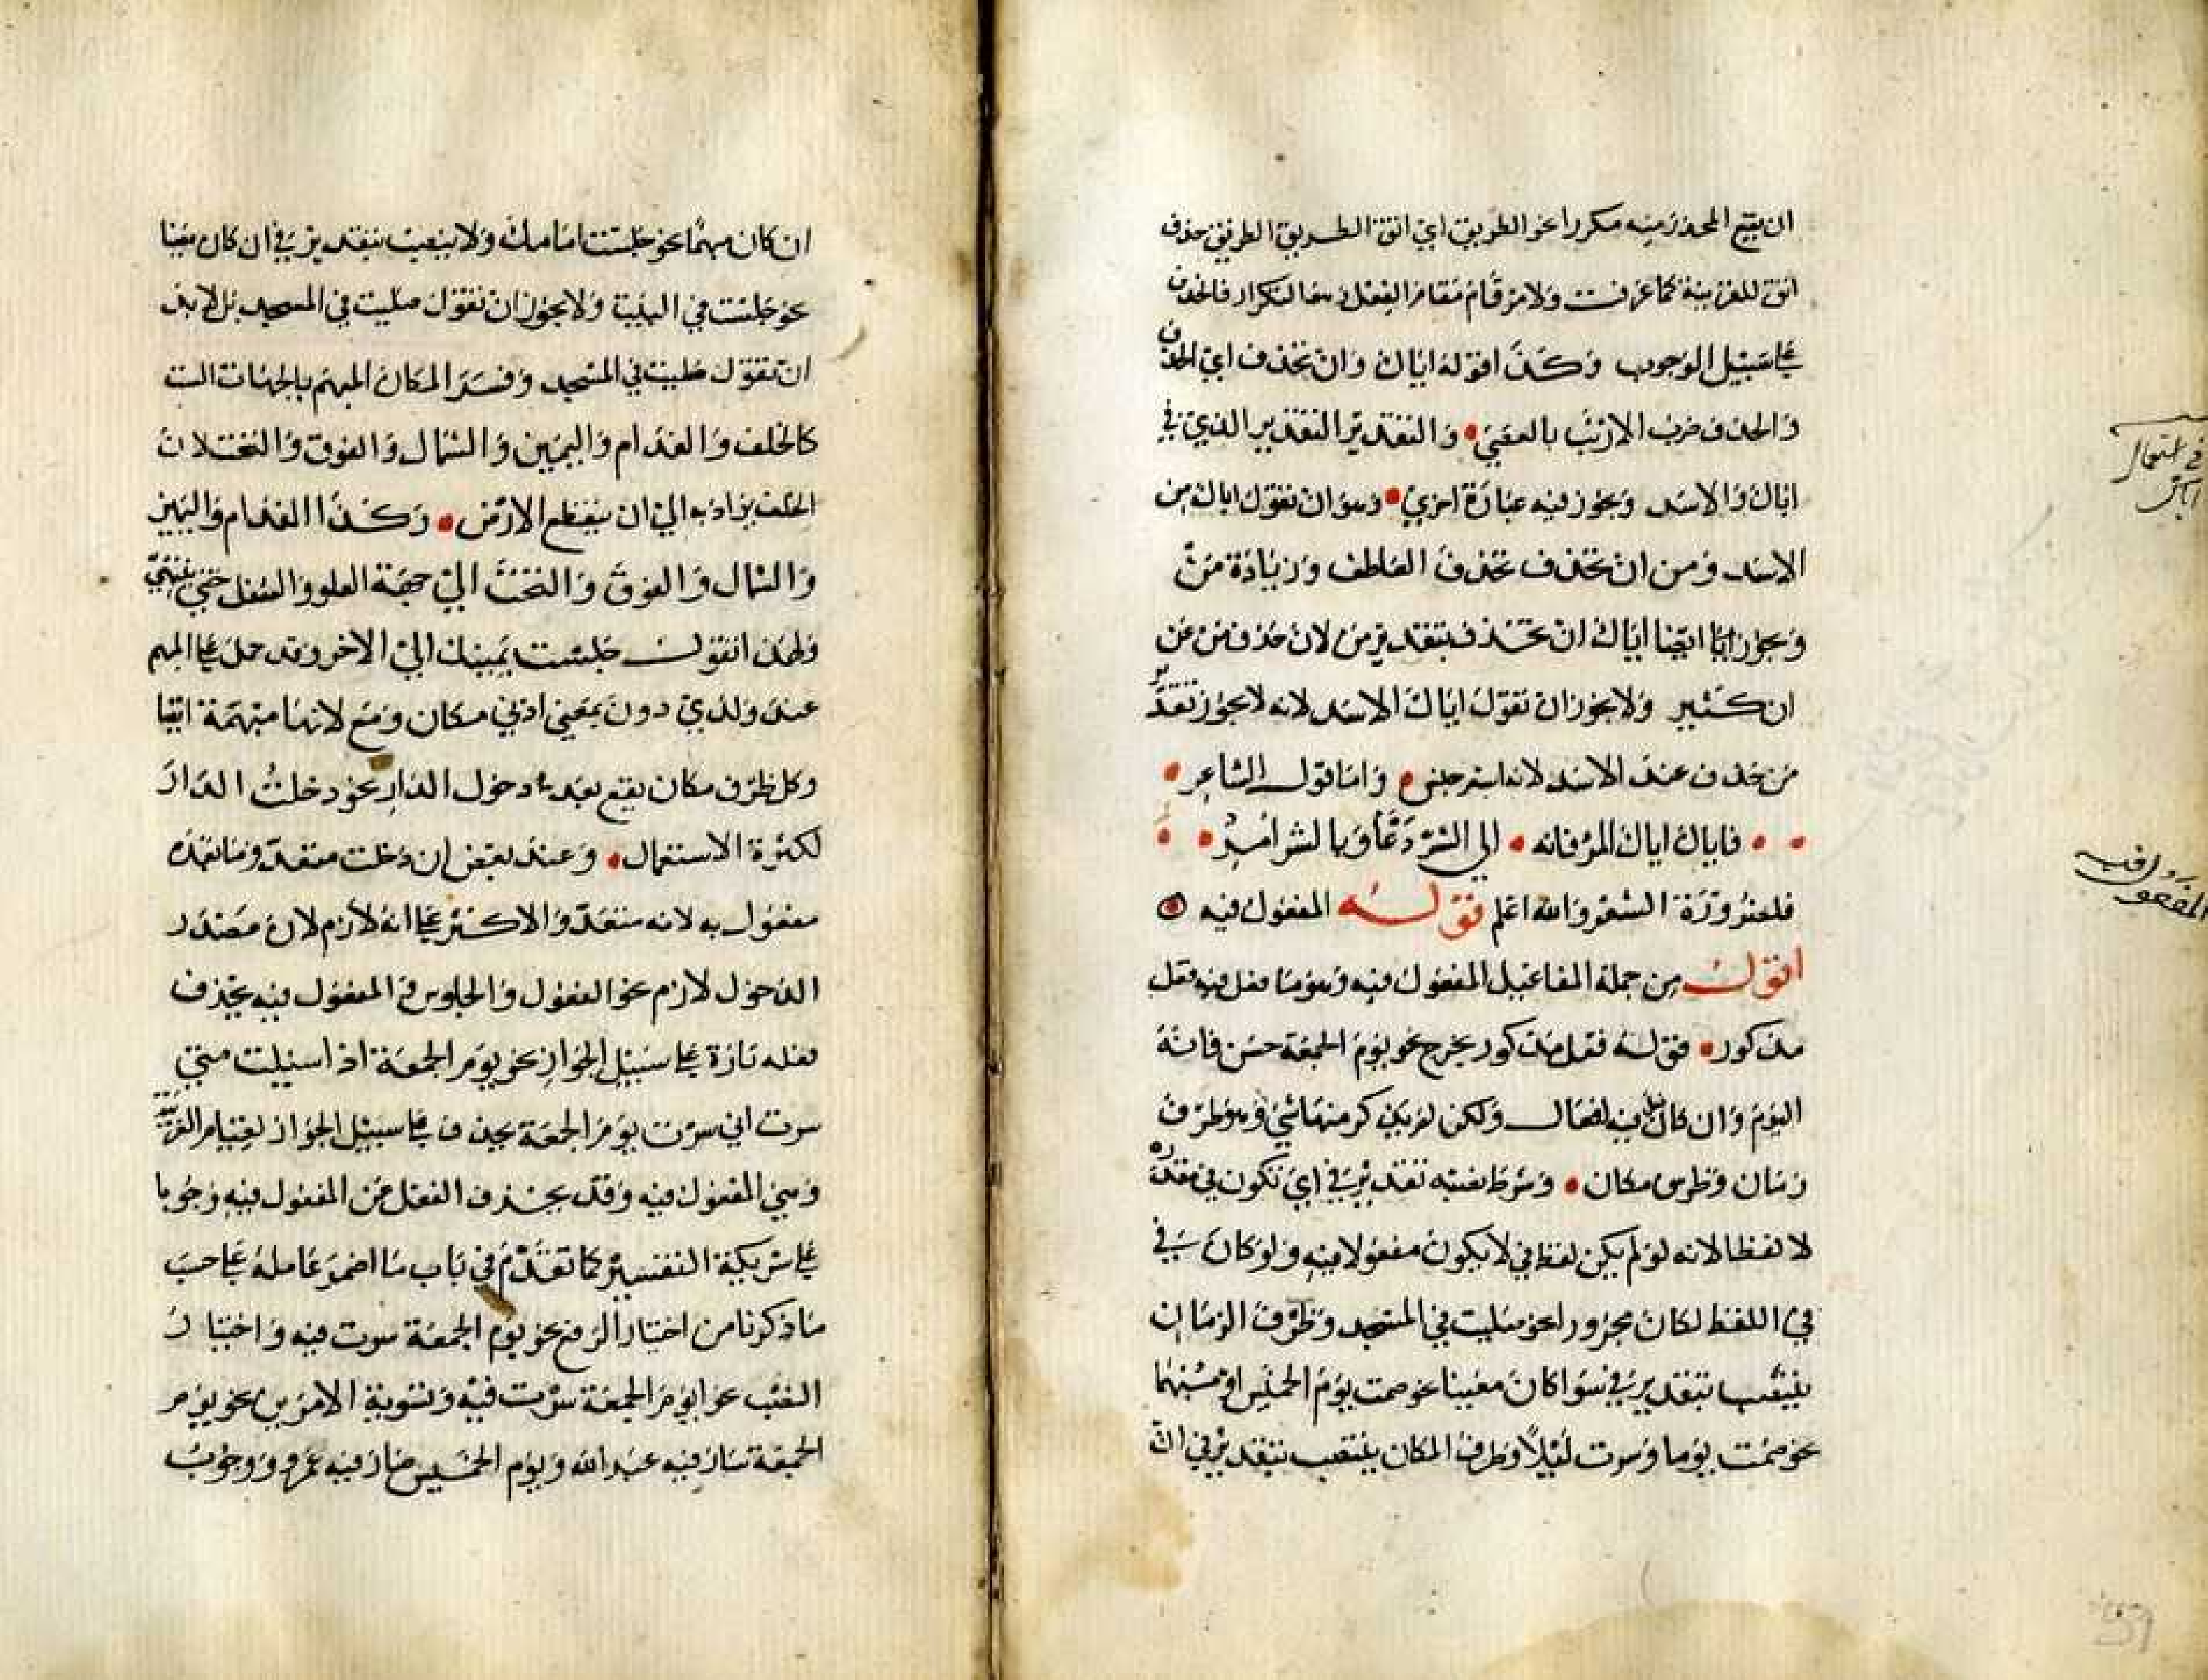 ان يقع المحذر منه مكررا نحو الطريق اي اتق الطريق الطريق حذف
اتق للقرينة كما عرفت ولامر قام مقام الفعل وهو التكرار فالحذف
على سبيل الوجوب وكذا قوله اياك وان تحذف اي الحذف
والحذف ضرب الارنب بالعصى والتقدير التقدير الذي في
اياك والاسد ويجوز فيه عبارة اخري وهو ان تقول اياك من
الاسد ومن ان تحذف بحذف العاطف وزيادة من
ويجوز ايضا اياك ان تحذف بتقدير من لان حذف من عن
ان كثير ولا يجوز ان تقول اياك الاسد لانه لا يجوز تقدير
من حذف عند الاسد لانه اسم جنس واما قول الشاعر
فاياك اياك المرء فانه الي الشر دعاء وبالشر امر
فلضرورة الشعر والله اعلم قوله المفعول فيه
اقول من جملة المفاعيل المفعول فيه وهو ما فعل فيه فعل
مذكور فقوله فعل مذكور يخرج نحو يوم الجمعة حسن فانه
اليوم وان كان فعل فيه افعال ولكن لم يذكر منها شئ وهو ظرف
زمان وظرف مكان وشرط نصبه تقدير في اي تكون في مقدره
لا لفظا لانه لو لم يكن لفظ في لا يكون مفعولا فيه ولو كان في
في اللفظ لكان مجرورا نحو صليت في المسجد وظرف الزمان
ينتصب بتقدير في سوا كان معينا نحو صمت يوم الخميس او مبهما
نحو صمت يوما وسرت ليلا وظرف المكان ينتصب بتقدير في ان
في استعمال
اياك
المفعول فيه
ان كان مبهما نحو جلست امامك ولا ينصب بتقدير في ان كان معينا
نحو جلست في البيت ولا يجوز ان تقول صليت في المسجد بل لا بد
ان تقول صليت في المسجد وفسر المكان المبهم بالجهات الست
كالخلف والقدام واليمين والشمال والفوق والتحت لان
الخلف يراد به الي ان ينقطع الارض وكذا القدام واليمين
والشمال والفوق والتحت الي جهة العلو والسفل حتي ينتهي
ولهذا تقول جلست يمينك الي الاخر وقد حمل على المبهم
عند ولدي دون بمعني ادني مكان ومع لانها مبهمة ايضا
وكل ظرف مكان يقع بعد دخول الدار نحو دخلت الدار
لكثرة الاستعمال وعند بعض ان دخلت متعد وما بعده
مفعول به لانه متعد والاكثر على انه لازم لان مصدر
الدخول لازم نحو القعول والجلوس و المفعول فيه يحذف
فعله تارة على سبيل الجواز نحو يوم الجمعة اذا سيلت متي
سرت اي سرت يوم الجمعة يحذف على سبيل الجواز لقيام القرينة
وهي المفعول فيه وقد يحذف الفعل عن المفعول فيه وجوبا
على شريطة التفسير كما تقدم في باب ما اضمر عامله على حسب
ما ذكرنا من اختيار الرفع نحو يوم الجمعة سرت فيه واختيار
النصب نحو ايوم الجمعة سرت فيه وتسوية الامرين نحو يوم
الجمعة سار فيه عبد الله ويوم الخميس صار فيه عمرو ووجوب